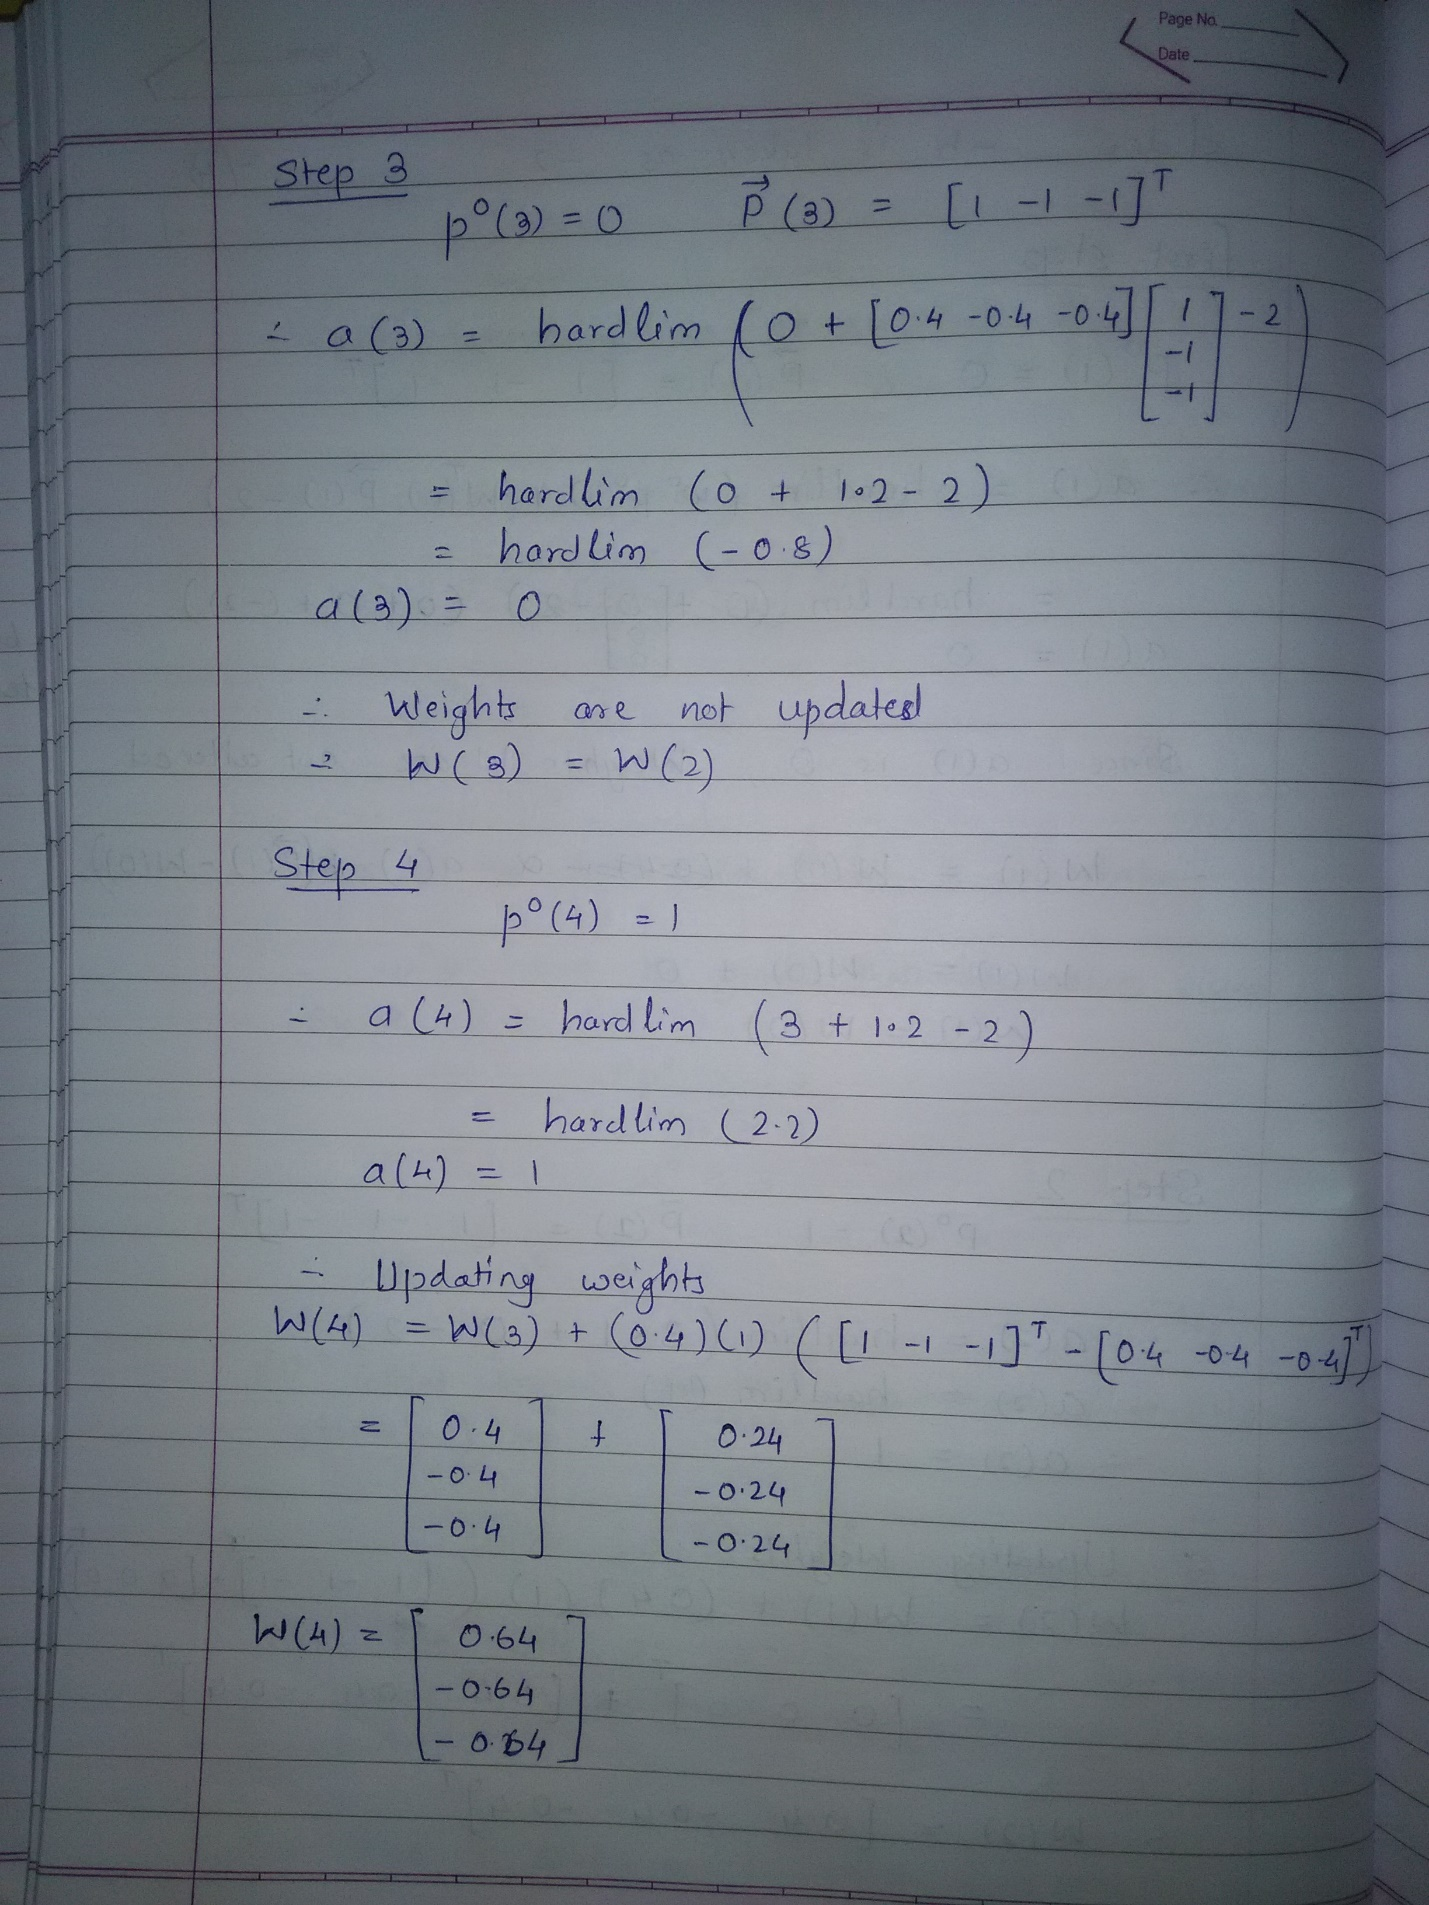 Page No.
Date
Step 3
p⁰(3) = 0 p⃗(3) = [1 -1 -1]ᵀ
∴ a(3) = hardlim (0 + [0.4 -0.4 -0.4] [1 -1 -1] - 2)
= hardlim (0 + 1.2 - 2)
= hardlim (-0.8)
a(3) = 0
∴ Weights are not updated
∴ W(3) = W(2)
Step 4
p⁰(4) = 1
∴ a(4) = hardlim (3 + 1.2 - 2)
= hardlim (2.2)
a(4) = 1
∴ Updating weights
W(4) = W(3) + (0.4)(1) ([1 -1 -1]ᵀ - [0.4 -0.4 -0.4]ᵀ)
= [0.4 + [0.24
-0.4 -0.24
-0.4] -0.24]
W(4) = [0.64
-0.64
-0.64]